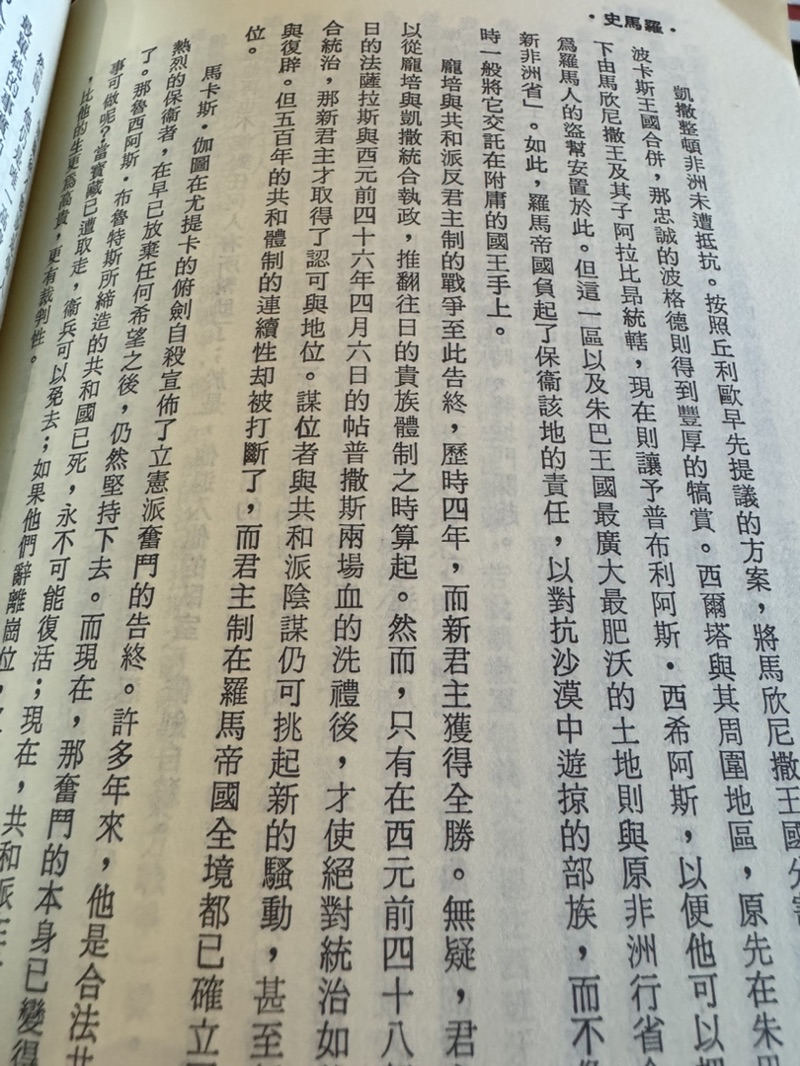 ·羅馬史·
凱撒整頓非洲未遭抵抗。按照丘利歐早先提議的方案，將馬欣尼撒王國分割
波卡斯王國合併，那忠誠的波格德則得到豐厚的犒賞。西爾塔與其周圍地區，原先在朱巴
下由馬欣尼撒王及其子阿拉比昂統轄，現在則讓予普布利阿斯·西希阿斯，以便他可以把
為羅馬人的盜幫安置於此。但這一區以及朱巴王國最廣大最肥沃的土地則與原非洲行省合
新非洲省」。如此，羅馬帝國負起了保衛該地的責任，以對抗沙漠中遊掠的部族，而不像
時一般將它交託在附庸的國王手上。
龐培與共和派反君主制的戰爭至此告終，歷時四年，而新君主獲得全勝。無疑，君
以從龐培與凱撒統合執政，推翻往日的貴族體制之時算起。然而，只有在西元前四十八年
日的法薩拉斯與西元前四十六年四月六日的帖普撒斯兩場血的洗禮後，才使絕對統治如
合統治，那新君主才取得了認可與地位。謀位者與共和派陰謀仍可挑起新的騷動，甚至
與復辟。但五百年的共和體制的連續性却被打斷了，而君主制在羅馬帝國全境都已確立
位。
馬卡斯·伽圖在尤提卡的俯劍自殺宣佈了立憲派奮鬥的告終。許多年來，他是合法共
熱烈的保衛者，在早已放棄任何希望之後，仍然堅持下去。而現在，那奮鬥的本身已變得
了。那魯西阿斯·布魯特斯所締造的共和國已死，永不可能復活；現在，共和派在
事可做呢？當寶藏已遭取走，衛兵可以免去；如果他們辭離崗位，
，比他的生更為高貴，更有裁判性。